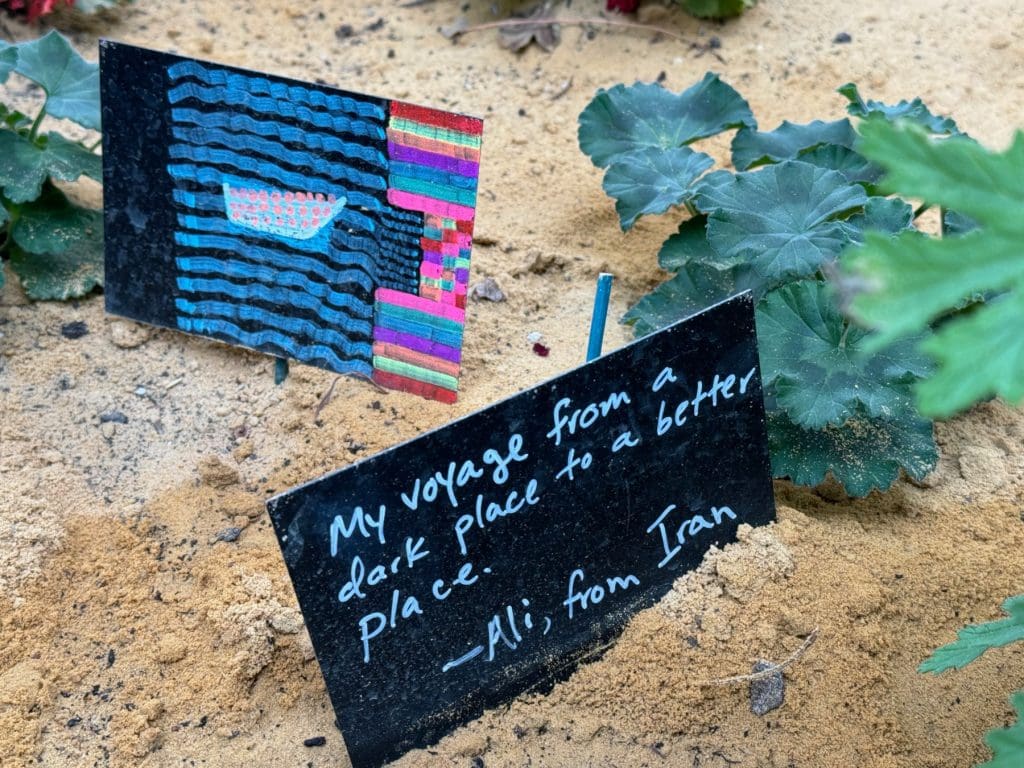 My voyage from a
dark place to a better
place.
—Ali, from Iran